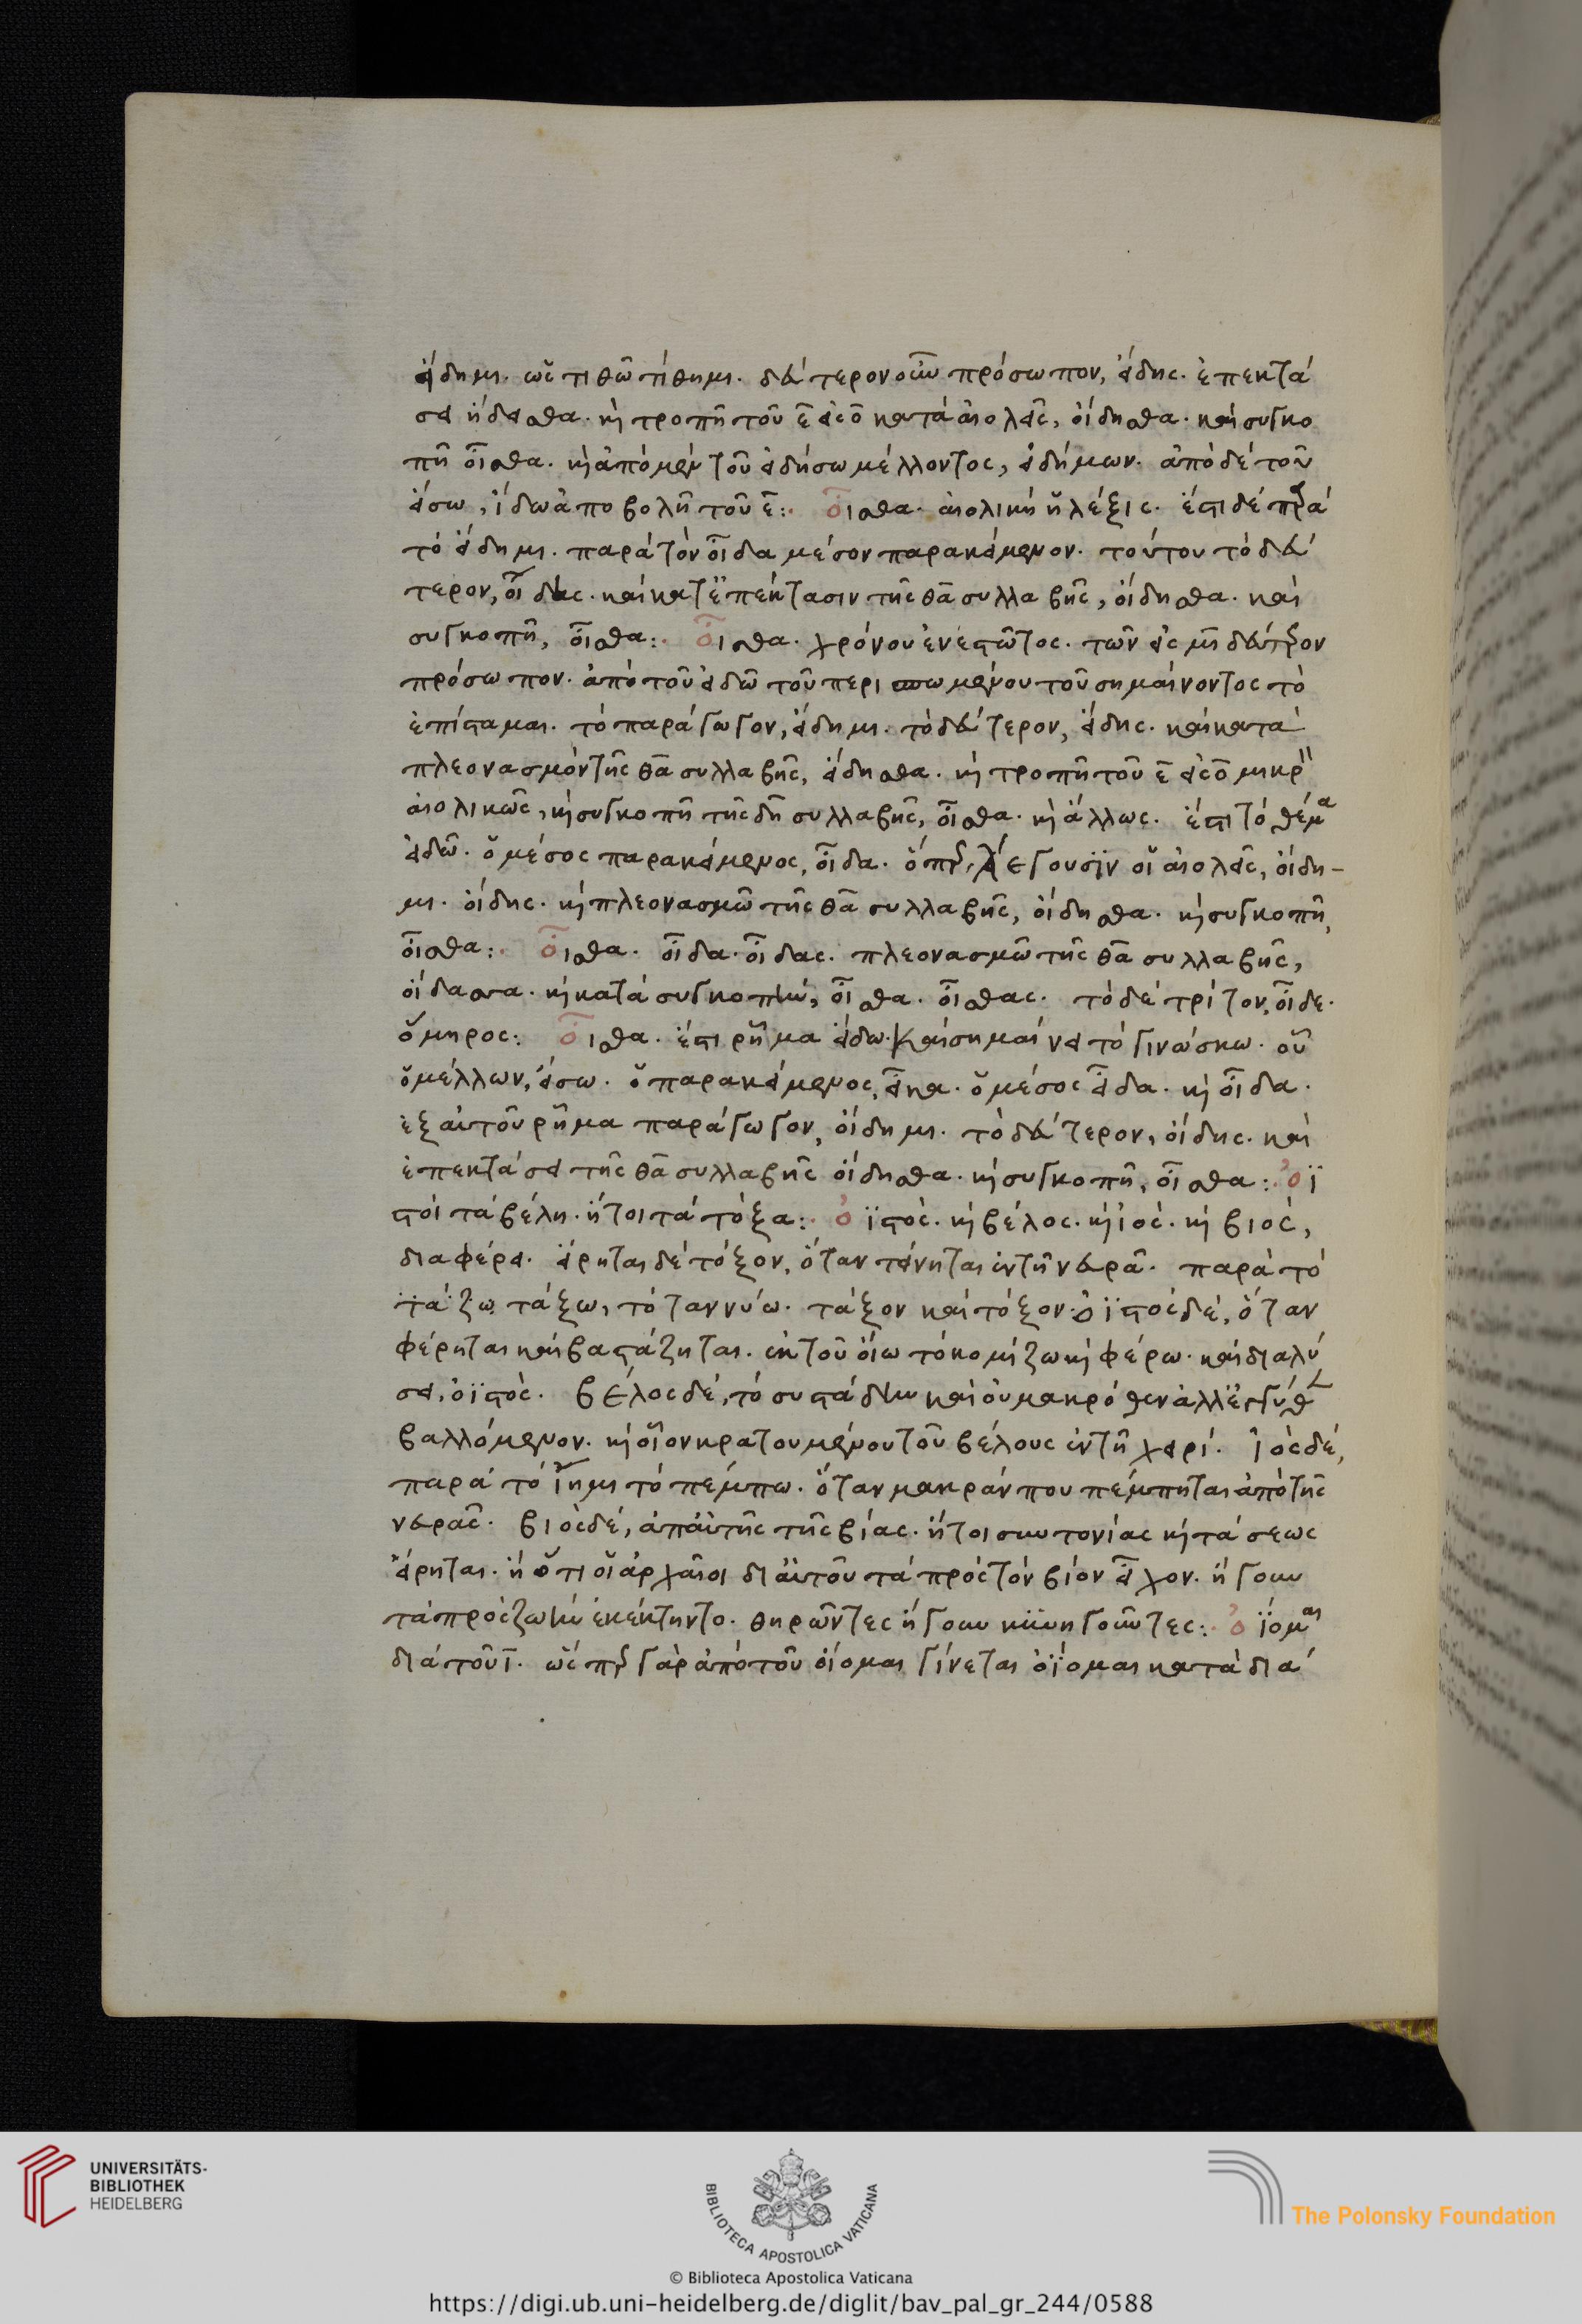 εἴδημι. ὡς τιθῶ τίθημι. δεύτερον οὖν πρόσωπον, εἴδης. ἐπεκτά
σει ἤδεισθα. καὶ τροπῆ τοῦ ε̄ εἰς ο̄ κατὰ αἰολεῖς, οἴδησθα. καὶ συγκο
πῆ οἶσθα. καὶ ἀπὸ μὲν τοῦ εἰδήσω μέλλοντος, εἰδήμων. ἀπὸ δὲ τοῦ
εἴσω, ἴδω ἀποβολῆ τοῦ ε̄: οἶσθα. αἰολικὴ ἡ λέξις. ἔστι δὲ παρὰ
τὸ εἴδημι. παρὰ τὸν οἶδα μέσον παρακείμενον. τούτου τὸ δεύ
τερον, οἶδας. καὶ κατ' ἐπέκτασιν τῆς θα συλλαβῆς, οἴδησθα. καὶ
συγκοπῆ, οἶσθα: οἶσθα. χρόνου ἐνεστῶτος. τῶν εἰς μι δεύτερον
πρόσωπον. ἀπὸ τοῦ εἰδῶ τοῦ περισπωμένου τοῦ σημαίνοντος τὸ
ἐπίσταμαι. τὸ παράγωγον, εἴδημι. τὸ δεύτερον, εἴδης. καὶ κατὰ
πλεονασμὸν τῆς θα συλλαβῆς, εἴδησθα. καὶ τροπῆ τοῦ ε̄ εἰς ο̄ μικρὸν
αἰολικῶς, καὶ συγκοπῆ τῆς δη συλλαβῆς, οἶσθα. καὶ ἄλλως. ἔστι τὸ θέμα
εἰδῶ. ὁ μέσος παρακείμενος, οἶδα. ὅπερ λέγουσιν οἱ αἰολεῖς, οἴδη-
μι. οἴδης. καὶ πλεονασμῶ τῆς θα συλλαβῆς, οἴδησθα. καὶ συγκοπῆ,
οἶσθα: οἶσθα. οἶδα. οἶδας. πλεονασμῶ τῆς θα συλλαβῆς,
οἴδασθα. καὶ κατὰ συγκοπὴν, οἶσθα. οἶσθας. τὸ δὲ τρίτον, οἶδε.
ὅμηρος: οἶσθα. ἔστι ῥῆμα εἴδω. καὶ σημαίνει τὸ γινώσκω. οὗ
ὁ μέλλων, εἴσω. ὁ παρακείμενος, εἶκα. ὁ μέσος εἶδα. καὶ οἶδα.
ἐξ αὐτοῦ ῥῆμα παράγωγον, οἴδημι. τὸ δεύτερον, οἴδης. καὶ
ἐπεκτάσει τῆς θα συλλαβῆς οἴδησθα. καὶ συγκοπῆ, οἶσθα: ὀϊ
στοὶ τὰ βέλη. ἤτοι τὰ τόξα: ὀϊστὸς. καὶ βέλος. καὶ ἰὸς. καὶ βιὸς,
διαφέρει. εἴρηται δὲ τόξον, ὅταν τείνηται ἐν τῆ νευρᾶ. παρὰ τὸ
τάζω τάξω, τὸ ταννύω. τάξον καὶ τόξον. ὀϊστὸς δὲ, ὅταν
φέρηται καὶ βαστάζηται. ἐκ τοῦ οἴω τὸ κομίζω καὶ φέρω. καὶ διαλύ
σει, ὀϊστὸς. βέλος δὲ, τὸ συστάδην καὶ οὐ μακρόθεν ἀλλ' ἐγγύθεν
βαλλόμενον. καὶ οἷον κρατουμένου τοῦ βέλους ἐν τῆ χειρί. ἰὸς δὲ,
παρὰ τὸ ἵημι τὸ πέμπω. ὅταν μακράν που πέμπηται ἀπὸ τῆς
νευρᾶς. βιὸς δὲ, ἀπ' αὐτῆς τῆς βίας. ἤτοι συντονίας καὶ τάσεως
εἴρηται. ἢ ὅτι οἱ ἀρχαῖοι δι' αὐτοῦ τὰ πρὸς τὸν βίον εἶχον. ἤγουν
τὰ πρὸς ζωὴν ἐκέκτηντο. θηρῶντες ἤγουν κυνηγοῦντες: ὀΐομαι
διὰ τοῦ ῑ. ὥσπερ γὰρ ἀπὸ τοῦ οἴομαι γίνεται ὀΐομαι κατὰ διά
UNIVERSITÄTS-
BIBLIOTHEK
HEIDELBERG
BIBLIOTECA APOSTOLICA VATICANA
The Polonsky Foundation
© Biblioteca Apostolica Vaticana
https://digi.ub.uni-heidelberg.de/diglit/bav_pal_gr_244/0588